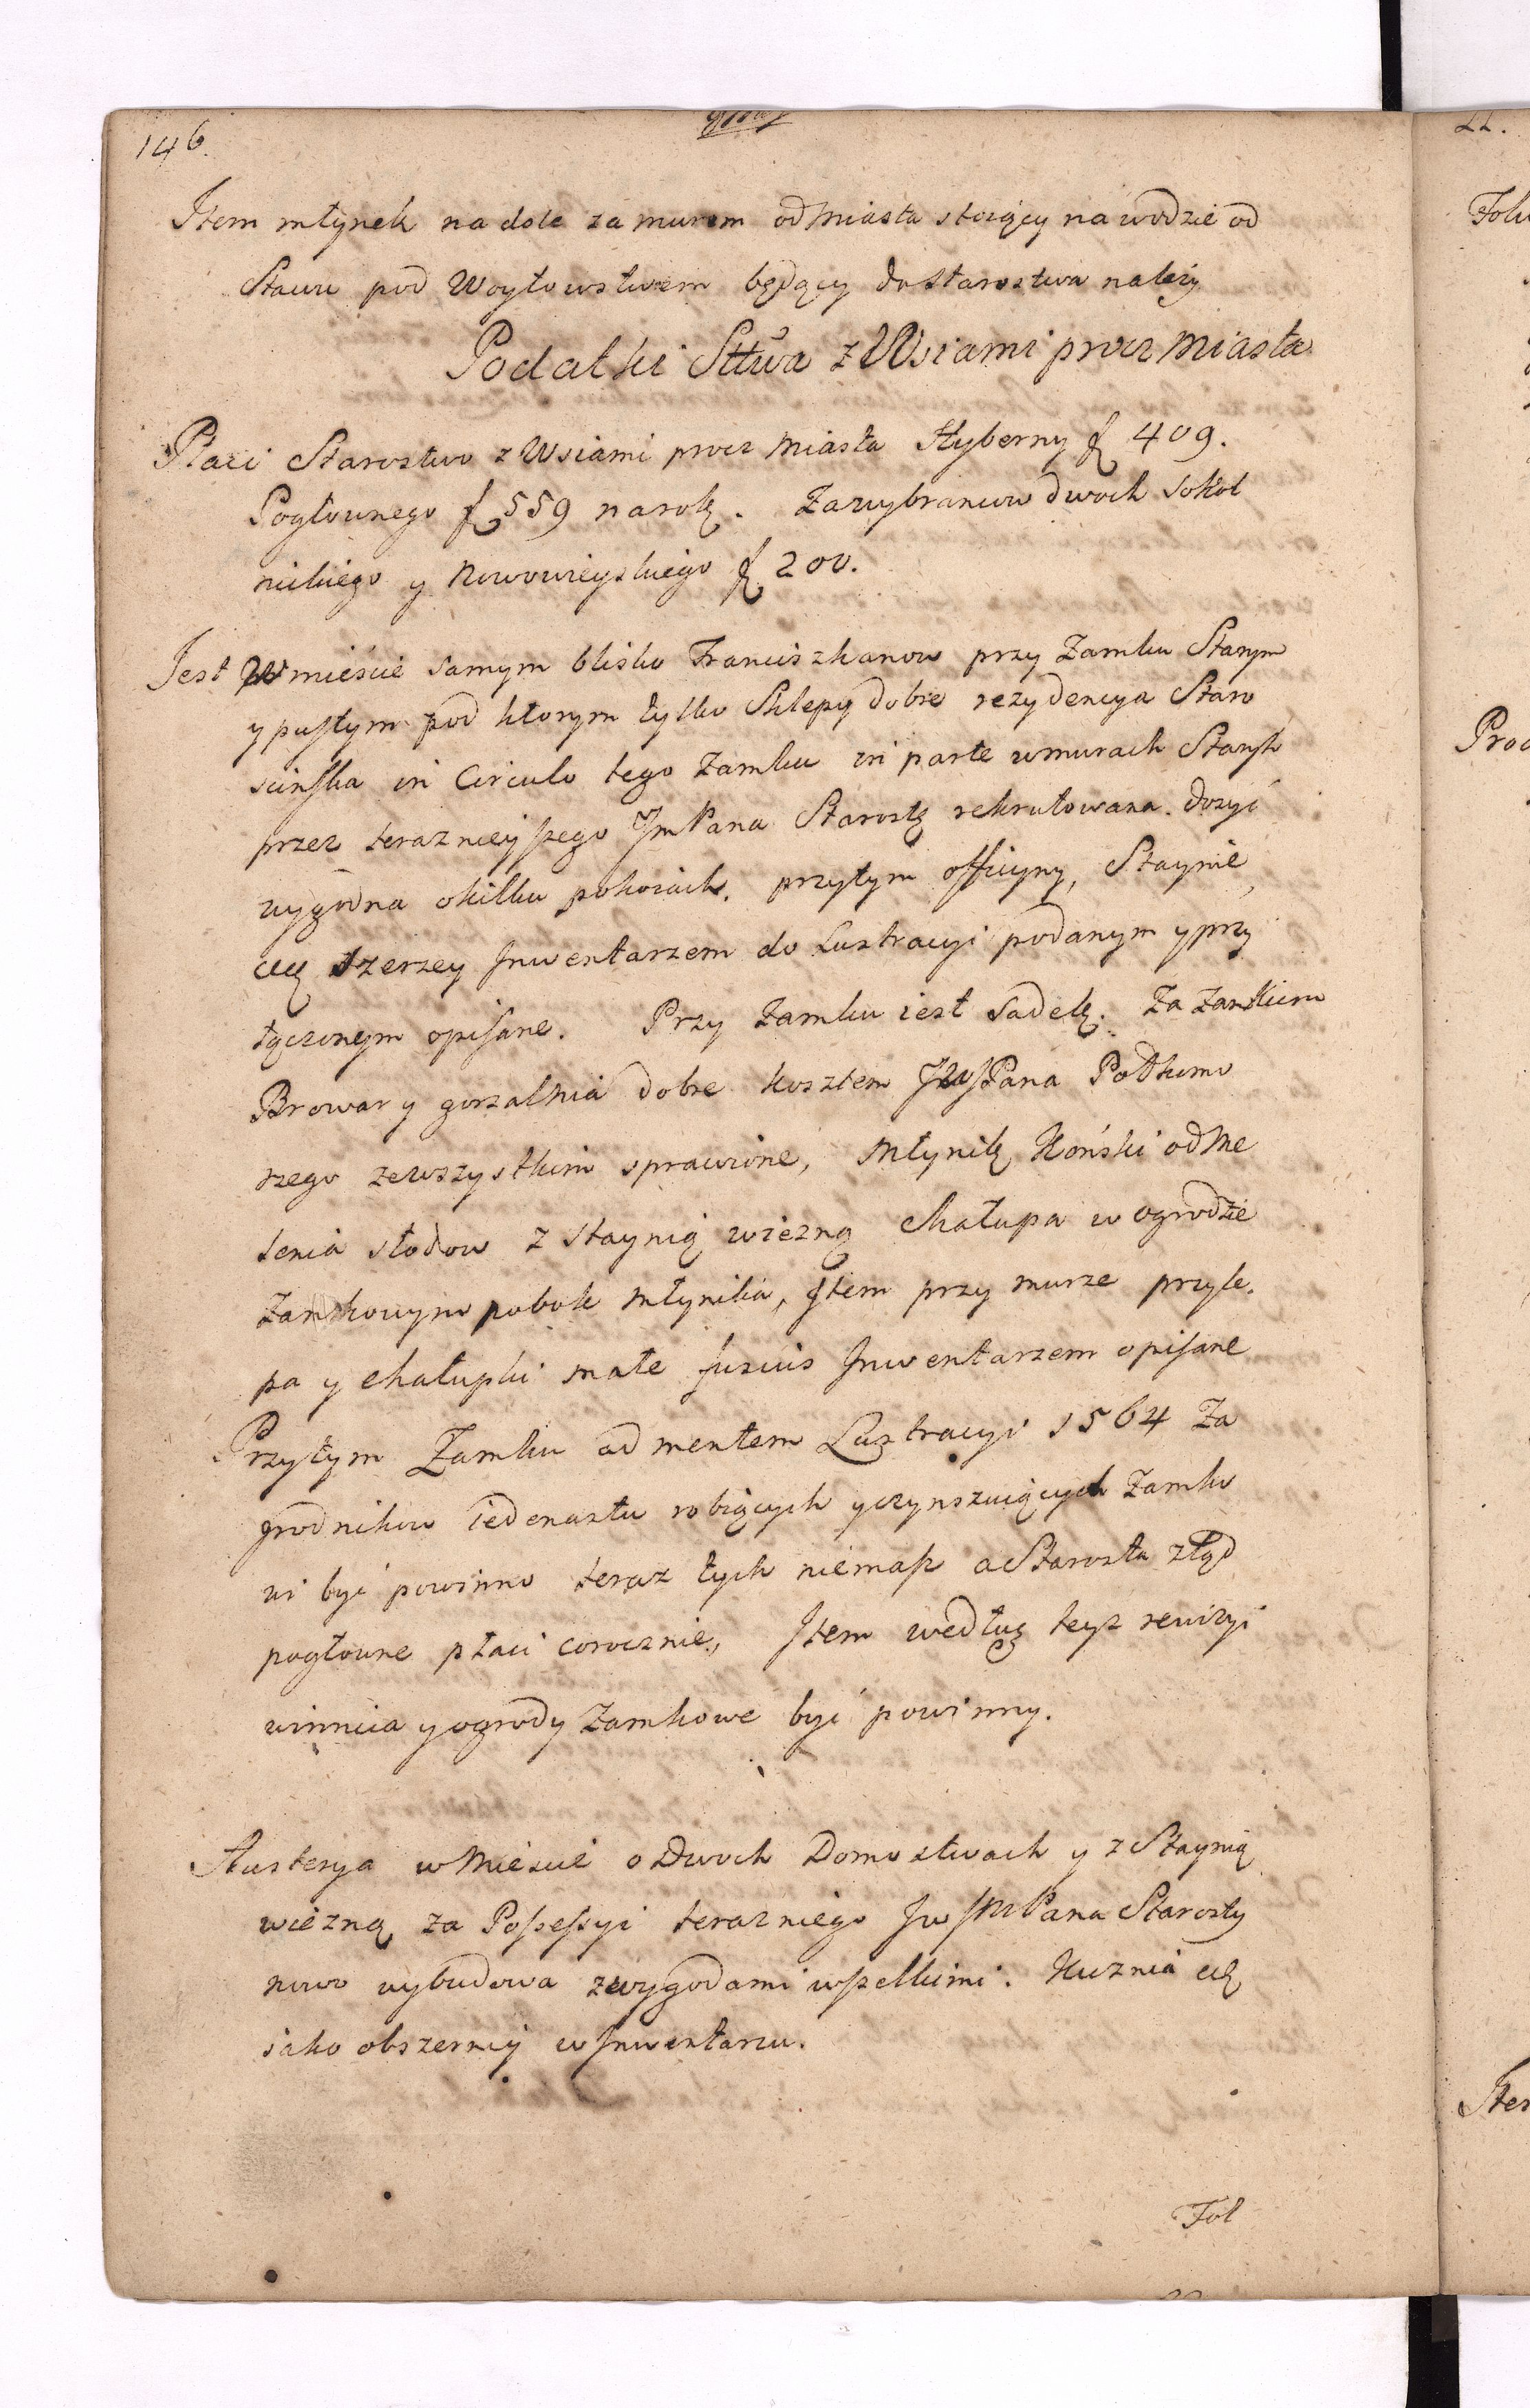 146.
Item młynek na dole za murem od Miasta stoiący na wodzie od
Stawu pod Woytowstwem będący do Starostwa należy
Podatki Sttwa z Wsiami procz Miasta
Płaci Starostwo z Wsiami procz Miasta Hyberny f 409.
Pogłownego f 559 na rok. Za wybrancow dwoch Sokol
nickiego y Nowowieyskiego f 200.
Jest W mieście samym blisko Franciszkanow przy Zamku Starym
y pustym pod ktorym tylko Sklepy dobre rezydencya Staro
scinska in Circulo tego Zamku in parte w murach Starych
przez teraznieyszego Jm Pana Starostę rekrutowana. dosyć
wygodna o kilku pokoiach. przytym officyny, Staynie,
etc szerzey Inwentarzem do Lustracyi podanym y przy
łączonym opisane. Przy Zamku iest Sadek. Za Zamkiem
Browar y gorzalnia dobre kosztem JW Pana Podkomo
rzego ze wszystkim sprawione, Młynik Koński od Me
lenia słodow z staynią wiezną Chałupa w ogrodzie
Zamkowym pobok młynika, Item przy murze przyle.
pa y chałupki małe fusius Inwentarzem opisane
Przytym Zamku ad mentem Lustracyi 1564 Za
grodnikow iedenastu robiących y czynszuiących Zamko
wi być powinno teraz tych niemasz a Starosta ztąd
pogłowne płaci corocznie, Item według teyz rewizyi
winnica y ogrody Zamkowe być powinny.
Austerya w Mieście o Dwoch Domostwach y z Staynią
wiezną za Possessyi terazniego Jw Jm Pana Starosty
nowo wybudowa z wygodami wszelkimi. Kuznia etc
iako obszerniy w Inwentarzu.
Fol